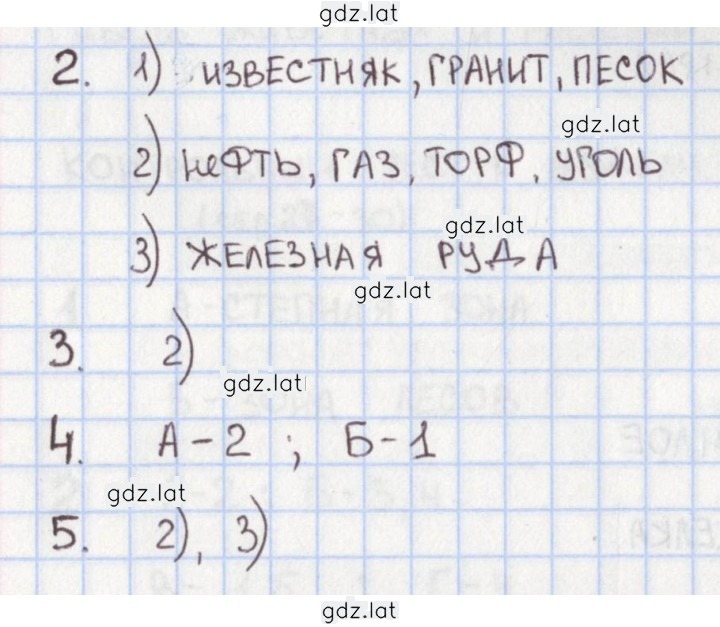 gdz.lat
2. 1) ИЗВЕСТНЯК, ГРАНИТ, ПЕСОК
gdz.lat
2) НеФТЬ, ГАЗ, ТОРФ, УГОЛЬ
gdz.lat
3) ЖЕЛЕЗНАЯ РУДА
gdz.lat
3. 2)
gdz.lat
4. А-2 ; Б-1
gdz.lat
5. 2), 3)
gdz.lat